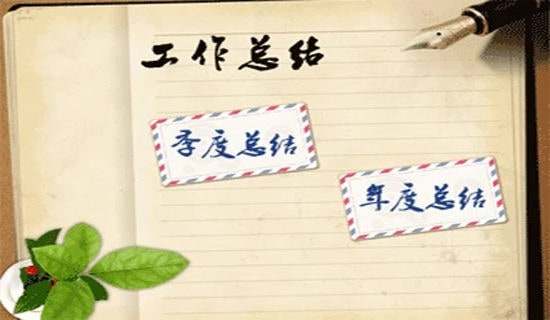 工作总结
季度总结
年度总结